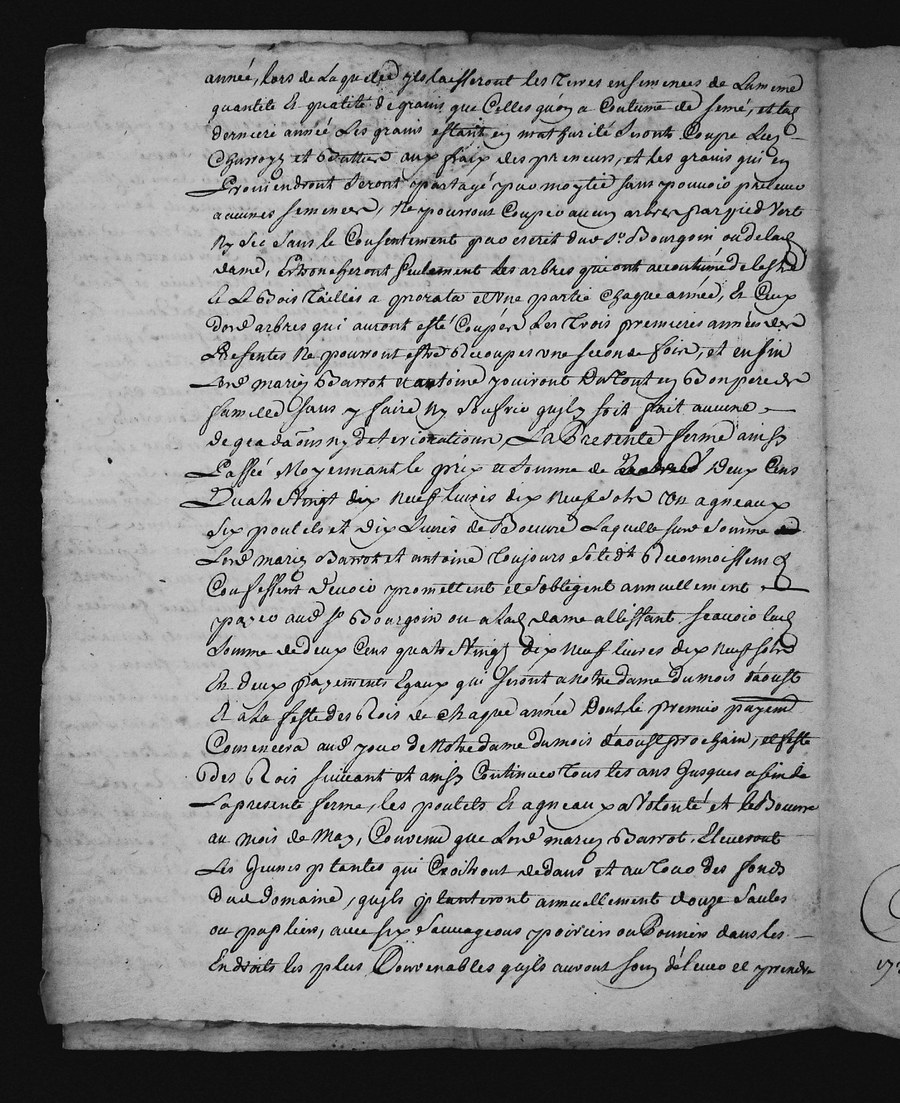 année, lors de laquelle ils laisseront les terres ensemencés de la meme
quantité Et qualité de grains que Celles quon a Coutume de semé, et lad
derniere année Les grains estant en mathurité Seront Coupé Liez
Charroyz et Battus aux fraix des preneurs, et les grains qui en
Proviendront Seront partagé par moytié sans pouvoir prelever
aucunes semences, Ne pourront Couper aucun arbre par pied Vert
Ny Sec Sans le Consentement par escrit dud Sr. Bourgoin ou de lad
dame, Ebrancheront Seulement les arbres qui ont accoutumé de lestre
Et Le Bois Taillis a prorata et Une partie Chaque année, Et Ceux
Desd arbres qui auront esté Coupés Les Trois premieres années des
Presentes Ne pourront estre Recoupes Une seconde fois, et enfin
Lesd mariez Barrot et antoine jouiront Du Tout en Bon pere de
famille Sans y faire Ny Soufrir quil y soit fait aucune
degradaons ny deteriorations, La Presente ferme ainsy
Passée Moyennant le prix et Somme de Deux Cens
Quatre Vingt dix Neuf Livres dix Neuf Sols agneaux
Six poulets et Dix Livres de Beurre Laquelle susd Somme
Lesd mariez Barrot et antoine Toujours Solidt Reconnoissent &
Confessent Devoir promettent et Sobligent annuellement
payer aud Sr Bourgoin ou a Lad dame allissant Scavoir lad
Somme de deux Cens quatre Vingt dix Neuf livres dix Neuf sols
En deux payements Egaux qui Seront a Notre dame du mois daoust
Et a La feste des Rois de Chaque année Dont le premier payemt
Comencera aud jour de Notre dame du mois daoust prochain, et feste
des Rois suivant et ainsy Continuer Tous les ans Jusques a fin de
La presente ferme, les poulets Et agneaux a Volonté et le Beurre
au mois de May, Convenu que Lesd mariez Barrot Eleveront
Les Jeunes plantes qui Croitront dedans et autour des fonds
Dud Domaine, quils planteront annuellement douze Saules
ou papliers, avec six Sauvageons poiriers ou Pomiers dans les
Endroits les plus Convenables quils auront Soin déléver et prendre